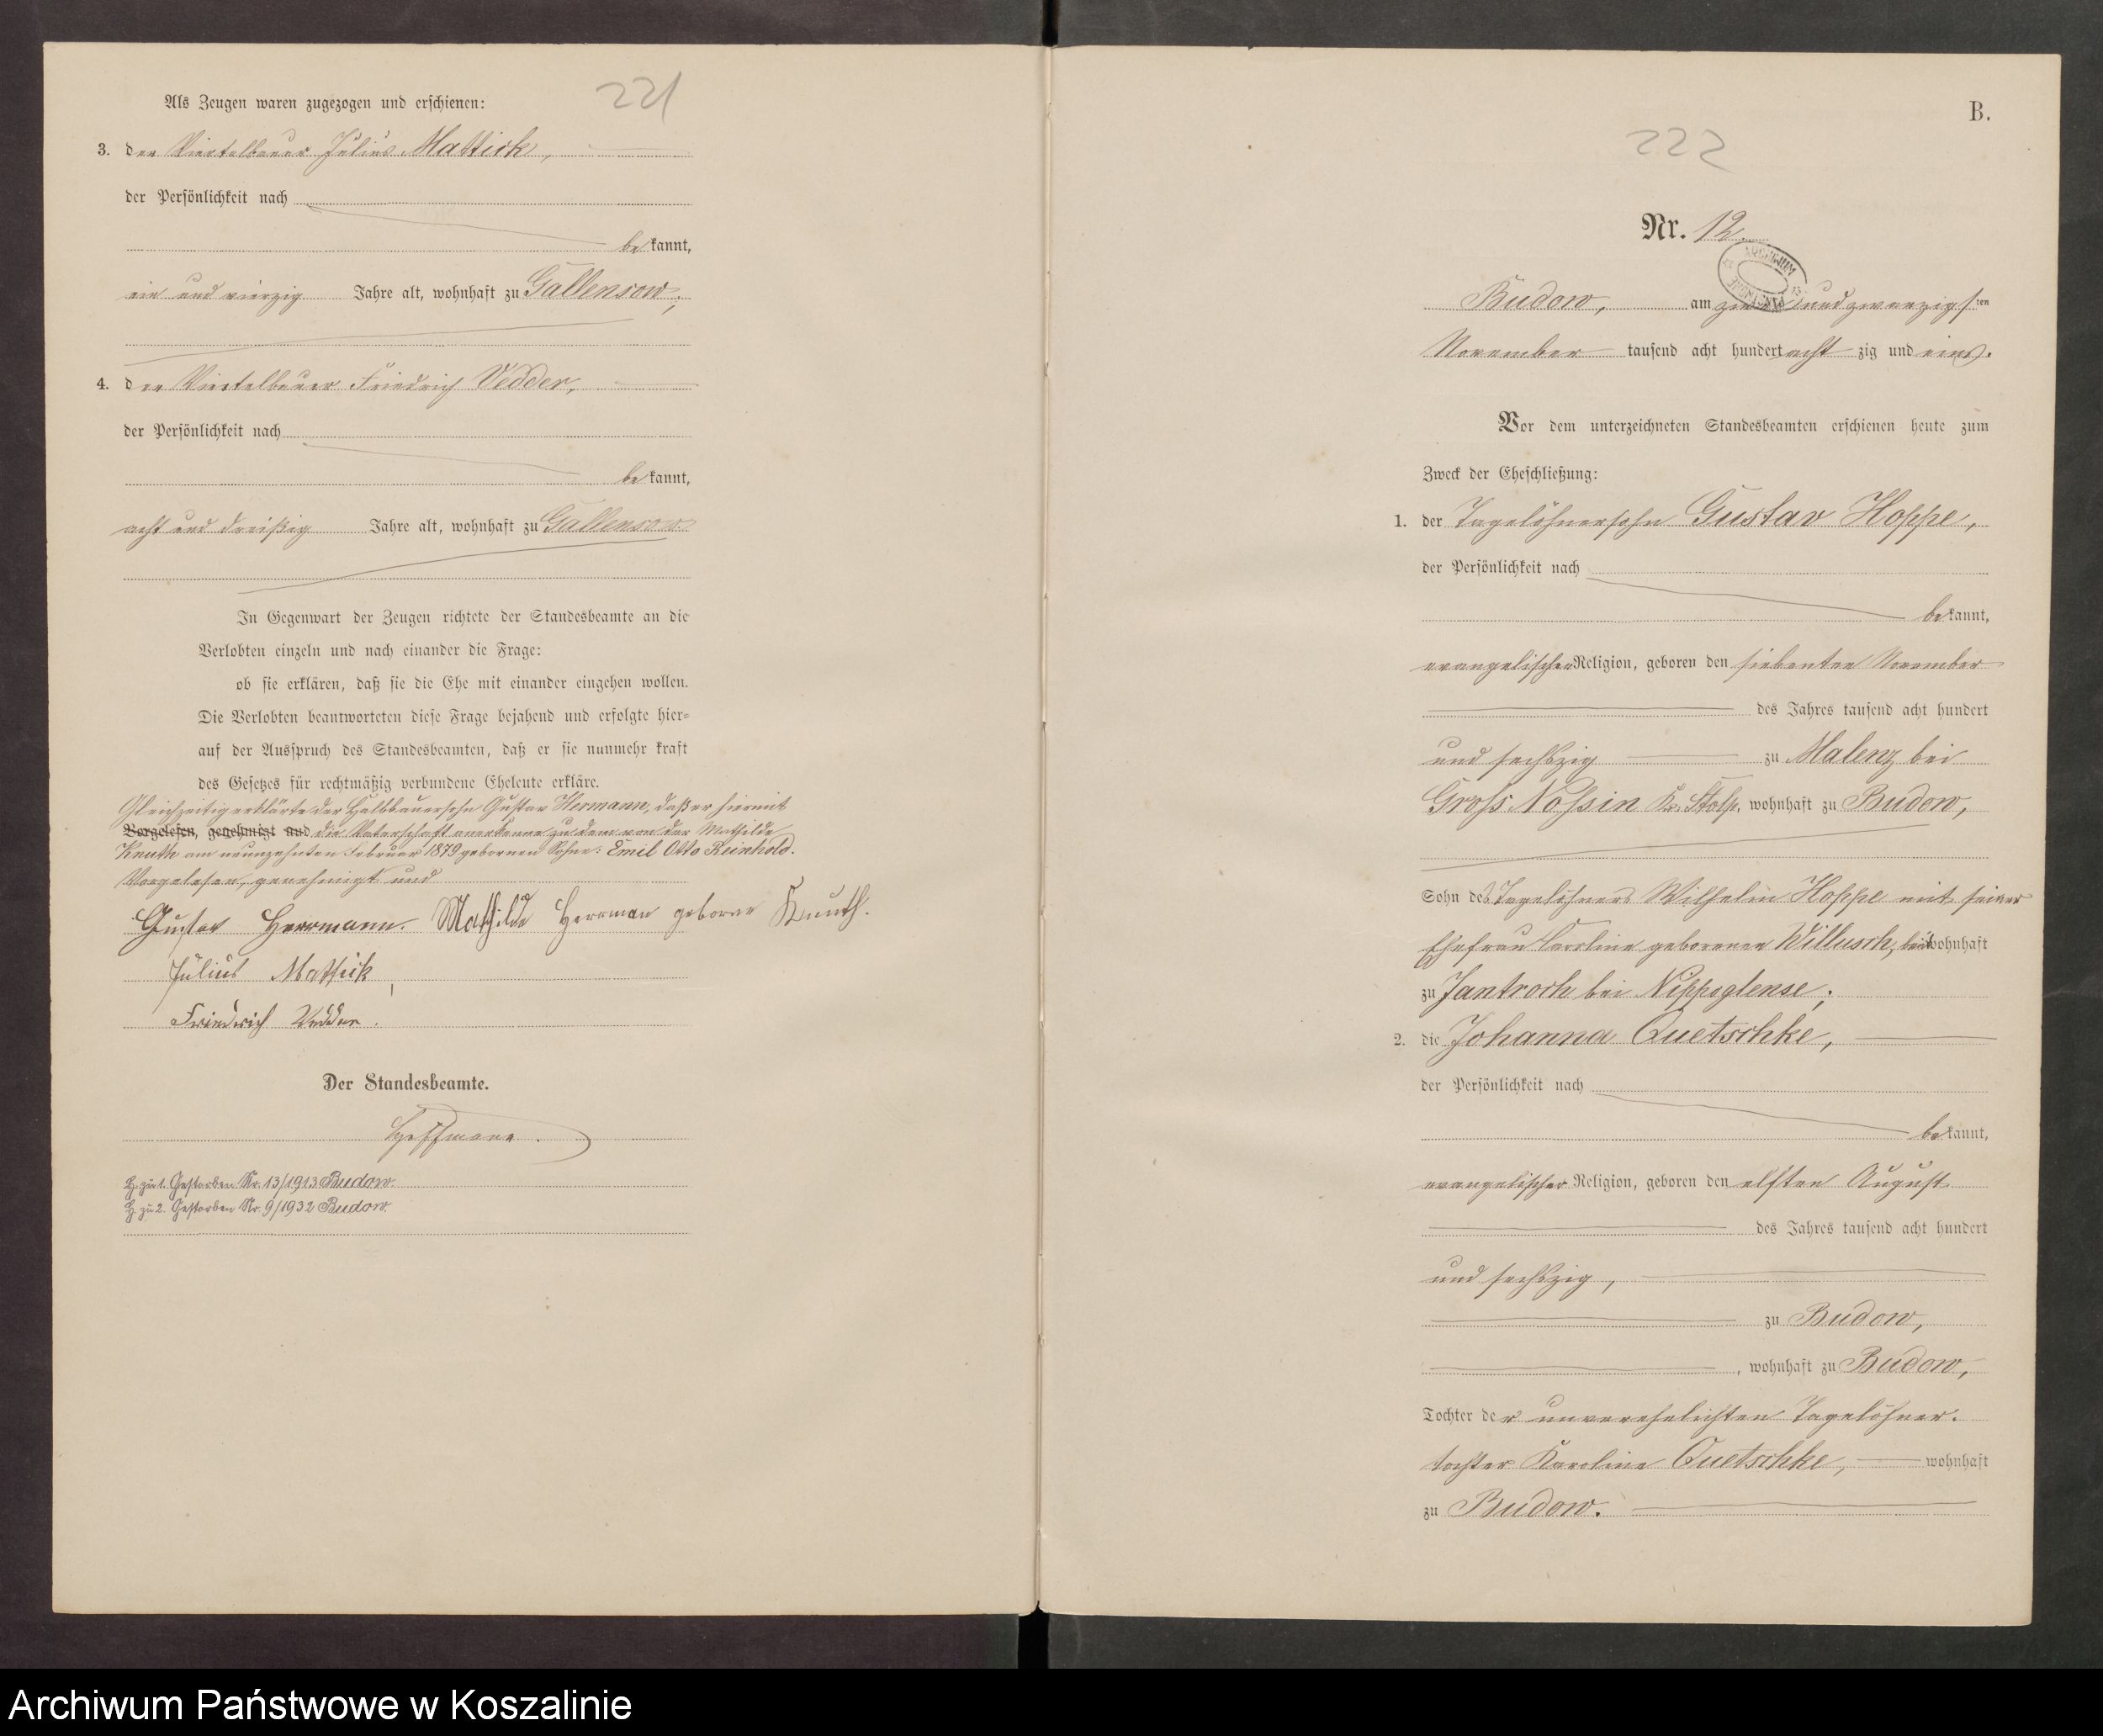 221
Als Zeugen waren zugezogen und erschienen:
3. der Viertelbauer Julius Mattick,
der Persönlichkeit nach
bekannt,
ein und vierzig Jahre alt, wohnhaft zu Gallensow;
4. der Viertelbauer Friedrich Vedder,
der Persönlichkeit nach
bekannt,
acht und dreißig Jahre alt, wohnhaft zu Gallensow
In Gegenwart der Zeugen richtete der Standesbeamte an die
Verlobten einzeln und nach einander die Frage:
ob sie erklären, daß sie die Ehe mit einander eingehen wollen.
Die Verlobten beantworteten diese Frage bejahend und erfolgte hier=
auf der Ausspruch des Standesbeamten, daß er sie nunmehr kraft
des Gesetzes für rechtmäßig verbundene Eheleute erkläre.
Gleichzeitig erklärte der Halbbauersohn Gustav Hermann, daß er hiermit
Vorgelesen, genehmigt und die Vaterschaft anerkenne zu dem von der Mathilde
Knuth am neunzehnten Februar 1879 gebornen Sohne: Emil Otto Reinhold.
Vorgelesen, genehmigt und
Gustav Herrmann. Mathilde Herrman geborne Knuth.
Julius Mattick,
Friedrich Vedder.
Der Standesbeamte.
H. zu 1. Gestorben Nr. 13/1913 Budow.
H. zu 2. Gestorben Nr. 9/1932 Budow.
B.
222
Nr. 12.
Budow, am und zwanzigsten
November tausend acht hundert acht zig und eins.
Vor dem unterzeichneten Standesbeamten erschienen heute zum
Zweck der Eheschließung:
1. der Tagelöhnersohn Gustav Hoppe,
der Persönlichkeit nach
bekannt,
evangelischer Religion, geboren den siebenten November
des Jahres tausend acht hundert
und sechszig zu Malenz bei
Gross Nossin Kr. Stolp, wohnhaft zu Budow,
Sohn des Tagelöhners Wilhelm Hoppe und seiner
Ehefrau Karoline geborenen Willusch, wohnhaft
zu Jantroch bei Nippoglense;
2. die Johanna Quetschke,
der Persönlichkeit nach
bekannt,
evangelischer Religion, geboren den elften August
des Jahres tausend acht hundert
und sechszig,
zu Budow,
, wohnhaft zu Budow,
Tochter der unverehelichten Tagelöhner-
tochter Karoline Quetschke, wohnhaft
zu Budow.
Archiwum Państwowe w Koszalinie